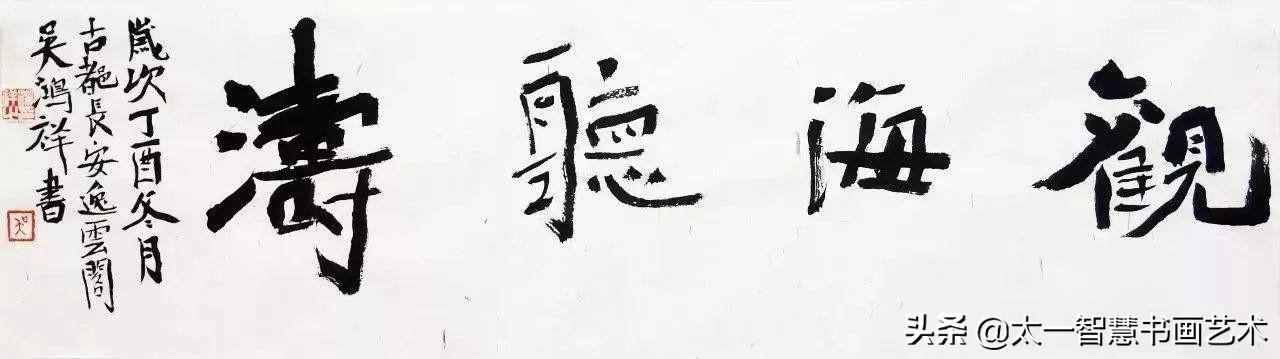 觀海聽濤
歲次丁酉冬月
古都長安逸雲閣
吳鴻祥書
头条 @太一智慧书画艺术